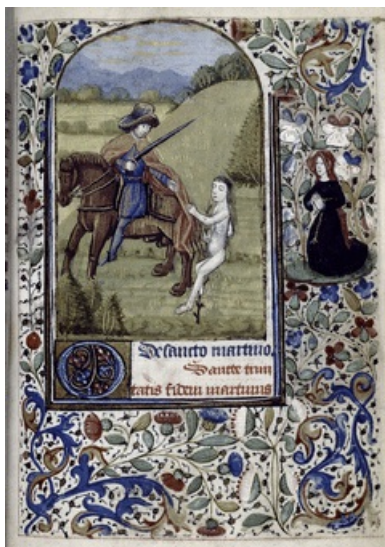 De sancto martino.
Sancte trini
tatis fidem martinus